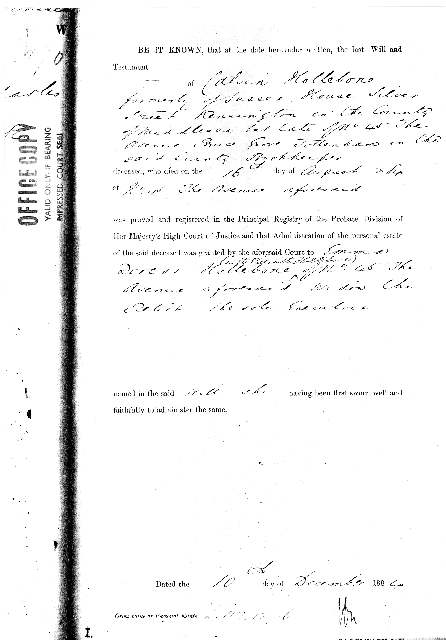 BE IT KNOWN, that at the date hereunder written, the last Will and
Testament
of Edwin Hollebone
formerly of Sussex House Silver
Street Kensington in the County
of Middlesex but late of No 45 The
Avenue Bruce Grove Tottenham in the
said County Bookkeeper
deceased, who died on the 16th day of August
at No 45 The Avenue aforesaid
was proved and registered in the Principal Registry of the Probate Division of
Her Majesty's High Court of Justice; and that Administration of the personal estate
of the said deceased was granted by the aforesaid Court to
Dorcas Hollebone of No 45 The
Avenue aforesaid Widow the
Relict the sole Executrix
named in the said Will she having been first sworn well and
faithfully to administer the same.
Dated the 10th day of December 188
Gross value of Personal Estate
OFFICE COPY
VALID ONLY IF BEARING
IMPRESSED COURT SEAL
I.